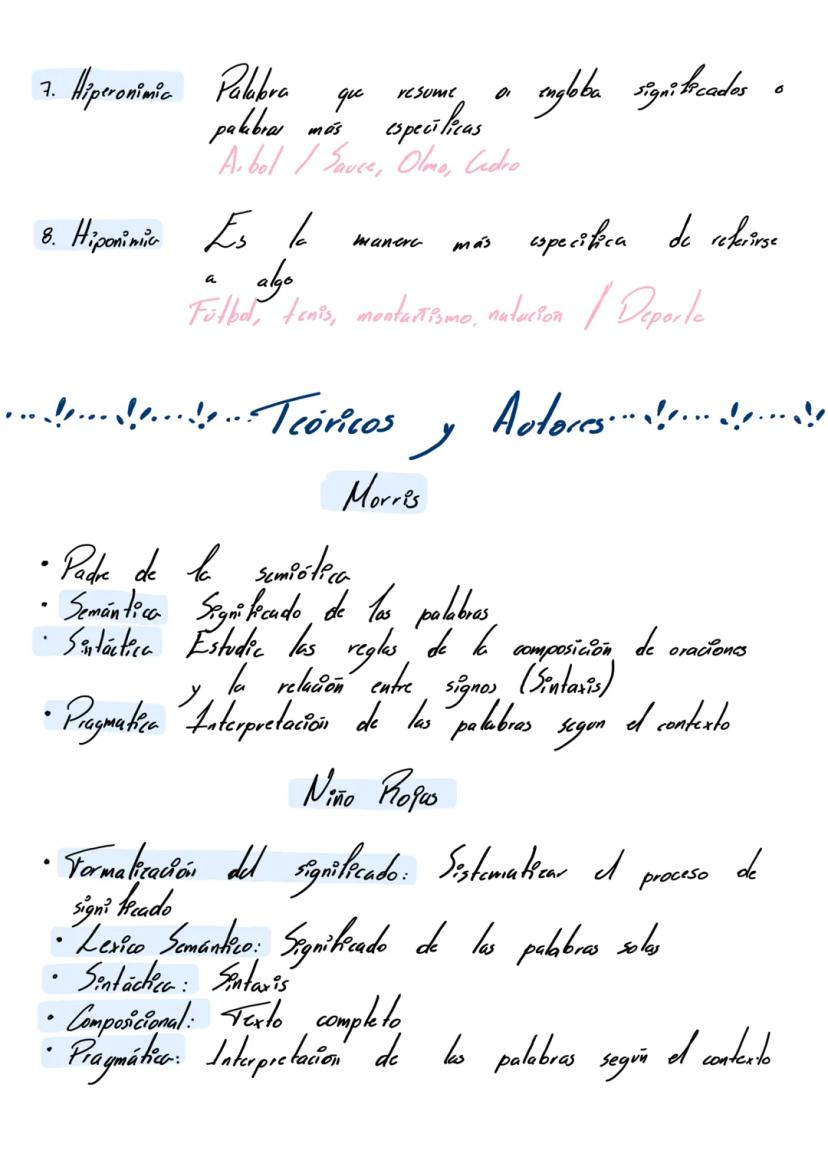 7. Hiperonimia Palabra que resume o engloba significados o
palabras más específicas
Árbol / Sauce, Olmo, Cedro
8. Hiponimia Es la manera más especifica de referirse
a algo
Fútbol, tenis, montañismo, natacion / Deporte
Teóricos y Autores
Morris
• Padre de la semiótica
• Semántica Significado de las palabras
• Sintáctica Estudia las reglas de la composición de oraciones
y la relación entre signos (Sintaxis)
• Pragmatica Interpretación de las palabras segun el contexto
Niño Rojas
• Formalización del significado: Sistematizar el proceso de
significado
• Lexico Semántico: Significado de las palabras solas
• Sintáctica: Sintaxis
• Composicional: Texto completo
• Pragmática: Interpretación de las palabras según el contexto